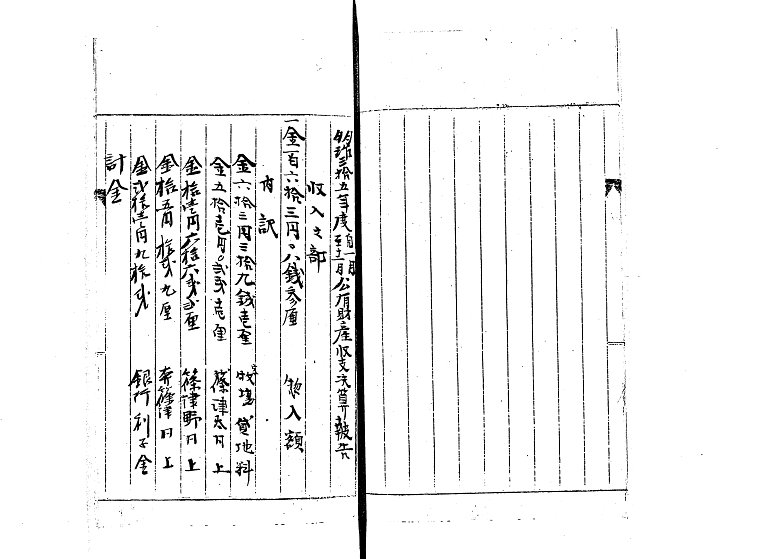 明治三拾五年度自一月至十二月公有財産収支決算報告
収入之部
一金百六拾三円〇八銭参厘 惣入額
内訳
金六拾三円三拾九銭壱厘 牧場貸地料
金五拾壱円〇弐銭壱厘 篠津太月上
金拾壱円六拾六銭弐厘 篠津野月上
金拾五円拾弐銭九厘 篠津月上
金弐拾壱円九拾銭 銀行利子金
計金